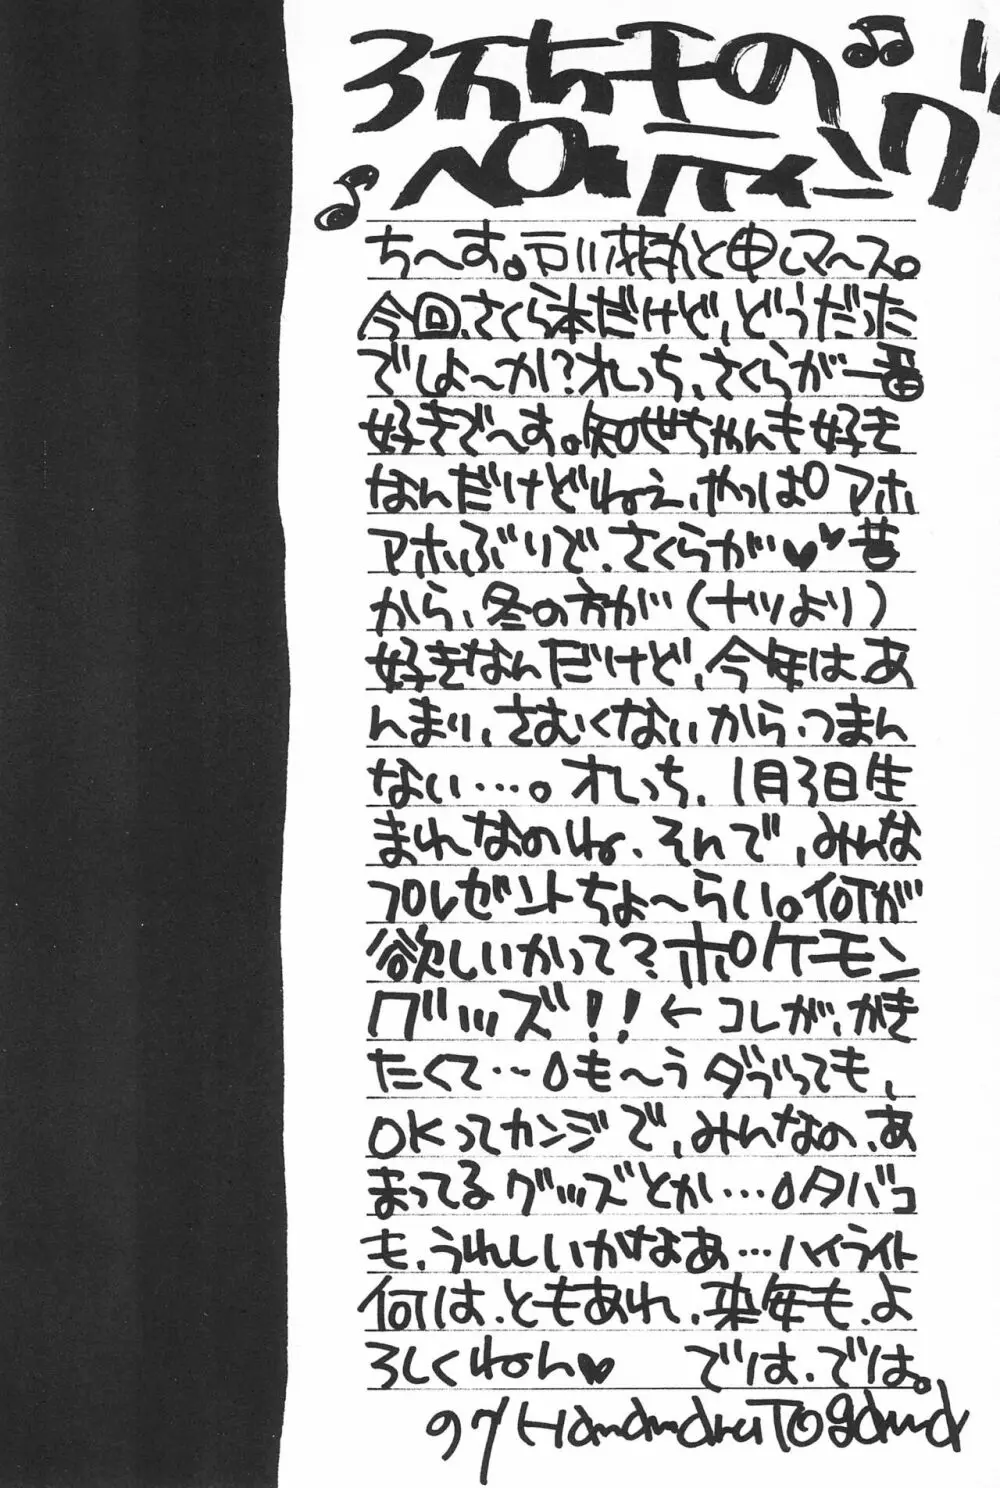 ち〜す。戸川花丸と申しマース。
今回、さくら本だけど、どうだった
でしょ〜か?オレっち、さくらが一番
好きで〜す。知世ちゃんも好き
なんだけどねぇ、やっぱ。アホ
アホぶりで、さくらが♥♥昔
から、冬の方が(ナツより)
好きなんだけど、今年は、あ
んまり、さむくないから、つまん
ない…。オレっち、1月3日生
まれなのね、そんで、みんな
プレゼントちょ〜らい。何が
欲しいかって?ポケモン
グッズ!!←コレが、かき
たくて…。も〜うダブっても、
OKってカンジで、みんなの、あ
まってるグッズとか…。タバコ
も、うれしいかなあ…ハイライト
何は、ともあれ、来年も、よ
ろしくねん♥ では、では。
97 Hanamaru Togawa